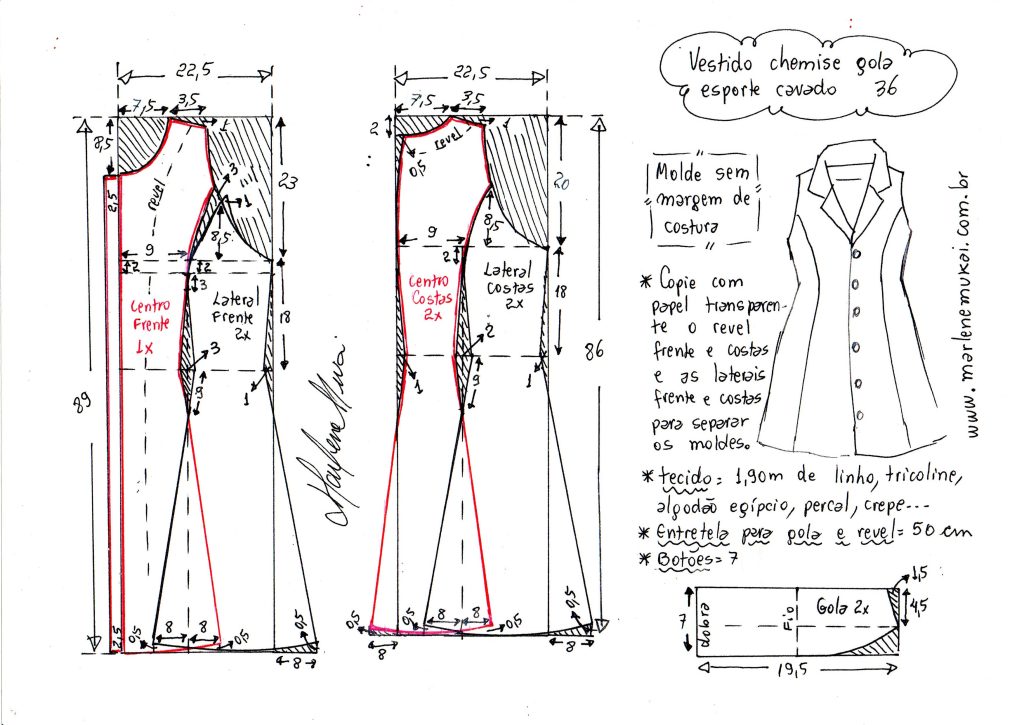 Vestido chemise gola
esporte cavado 36
22,5
7,5
3,5
1
8,5
2,5
revel
3
1
8,5
23
9
2
2
3
Centro
Frente
1x
Lateral
Frente
2x
18
3
9
1
89
2,5
0,5
8
8
0,5
0,5
8
Marlene Mukai
22,5
7,5
3,5
1
2
0,5
revel
8,5
20
9
2
Centro
Costas
2x
Lateral
Costas
2x
18
2
1
9
1
86
0,5
8
8
0,5
0,5
8
8
Molde sem
margem de
costura
* Copie com
papel transparen-
te o revel
frente e costas
e as laterais
frente e costas
para separar
os moldes.
www.marlenemukai.com.br
* tecido = 1,90m de linho, tricoline,
algodão egípcio, percal, crepe---
* Entretela para gola e revel = 50 cm
* Botões = 7
7
dobra
Fio
Gola 2x
1,5
4,5
19,5